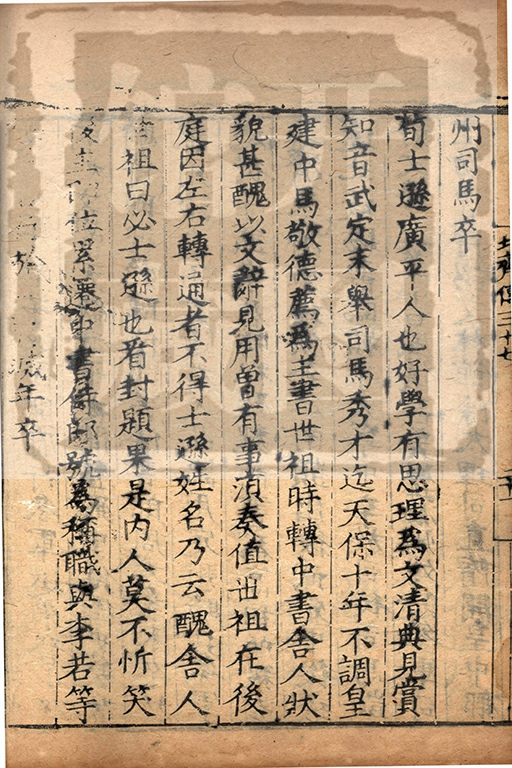 傳三十七
州司馬卒
荀士遜廣平人也好學有思理為文清典見賞
知音武定末舉司馬秀才迄天保十年不調皇
建中馬敬德薦為主書世祖時轉中書舍人狀
貌甚醜以文辭見用曾有事須奏值世祖在後
庭因左右轉通者不得士遜姓名乃云醜舍人
世祖曰必士遜也看封題果是內人莫不忻笑
位累遷中書侍郎號為稱職與李若等
滅年卒